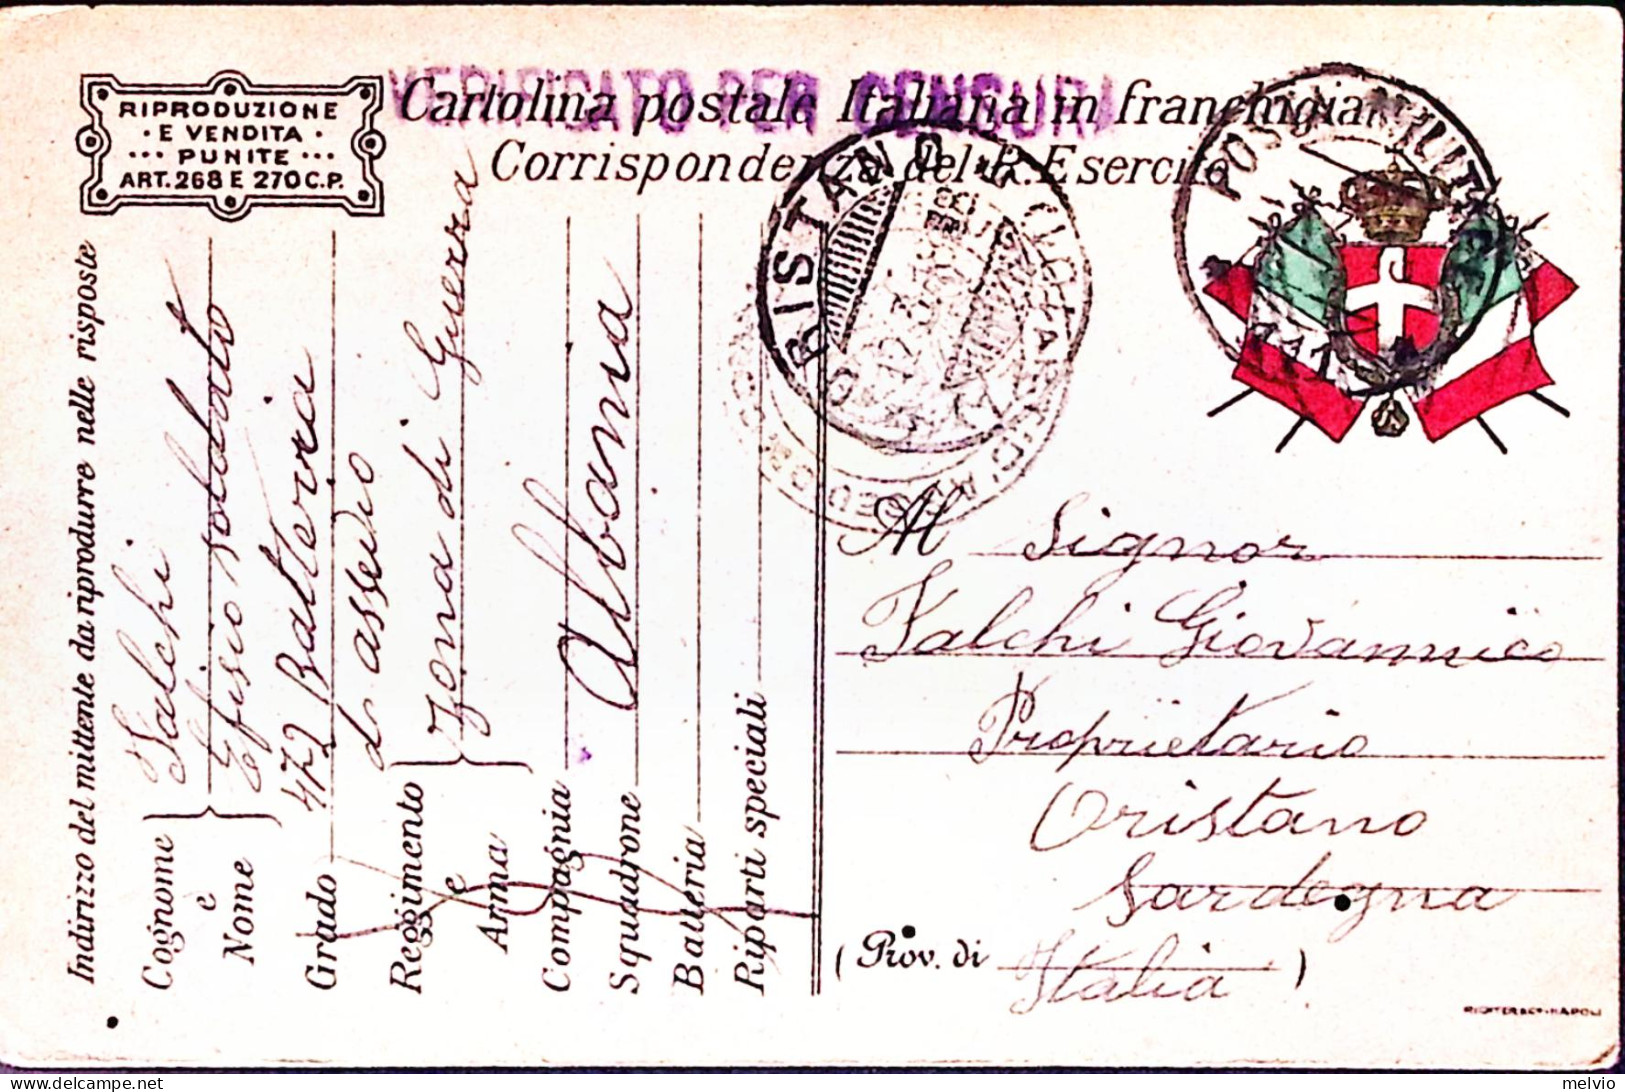 RIPRODUZIONE
· E VENDITA ·
··· PUNITE ···
ART. 268 E 270 C.P.
VERIFICATO PER CENSURA
Cartolina postale Italiana in franchigia
Corrispondenza del R. Esercito
POSTA MILITARE
141
ORISTANO
Indirizzo del mittente da riprodurre nelle risposte
Cognome e Nome
Falchi
Efisio soldato
Grado
472 Batteria
Reggimento e Arma
d'assedio
Zona di Guerra
Compagnia
Albania
Squadrone
Batteria
Riparti speciali
Al Signor
Falchi Giovannico
Proprietario
Oristano
Sardegna
(Prov. di Italia)
RICHTER & Co - NAPOLI
melvio